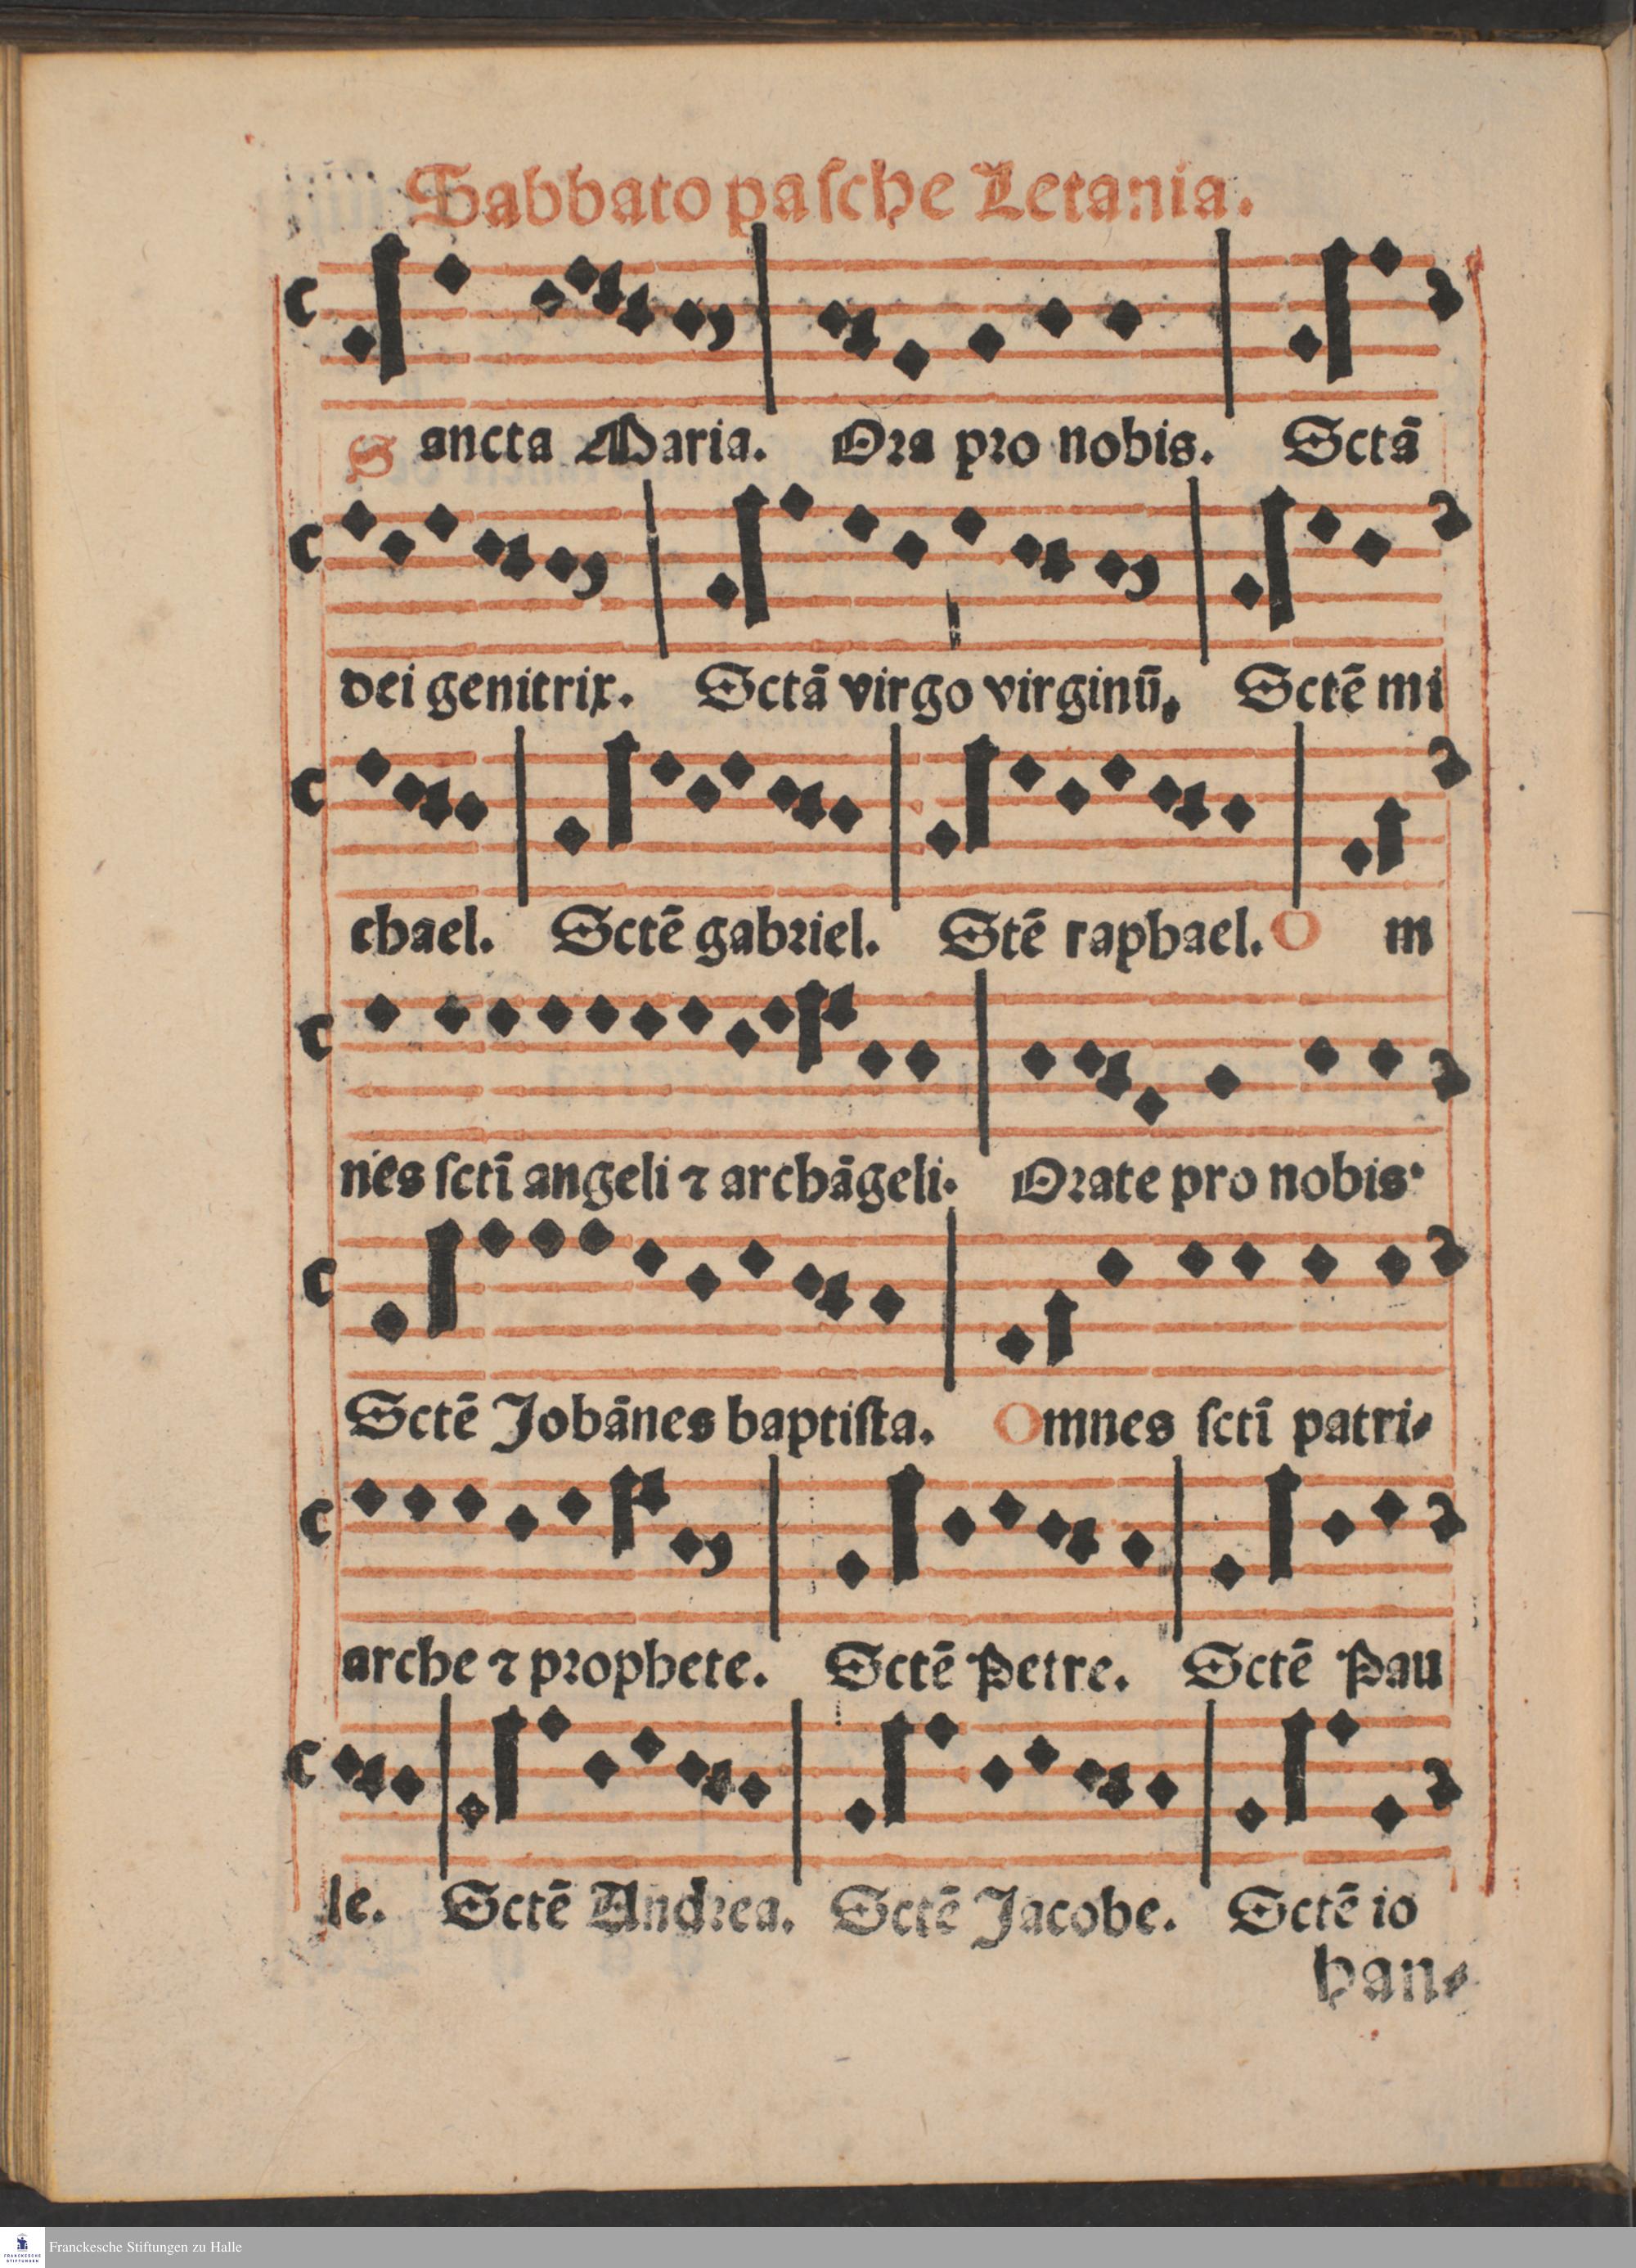 Sabbato pasche Letania.
Sancta Maria. Ora pro nobis. Sctā
dei genitrix. Sctā virgo virginū, Sctē mi
chael. Sctē gabriel. Stē raphael. Om
nes sctī angeli ⁊ archāgeli. Orate pro nobis.
Sctē Johānes baptista. Omnes sctī patri⸗
arche ⁊ prophete. Sctē Petre. Sctē Pau
le. Sctē Andrea. Sctē Jacobe. Sctē io
han⸗
Franckesche Stiftungen zu Halle